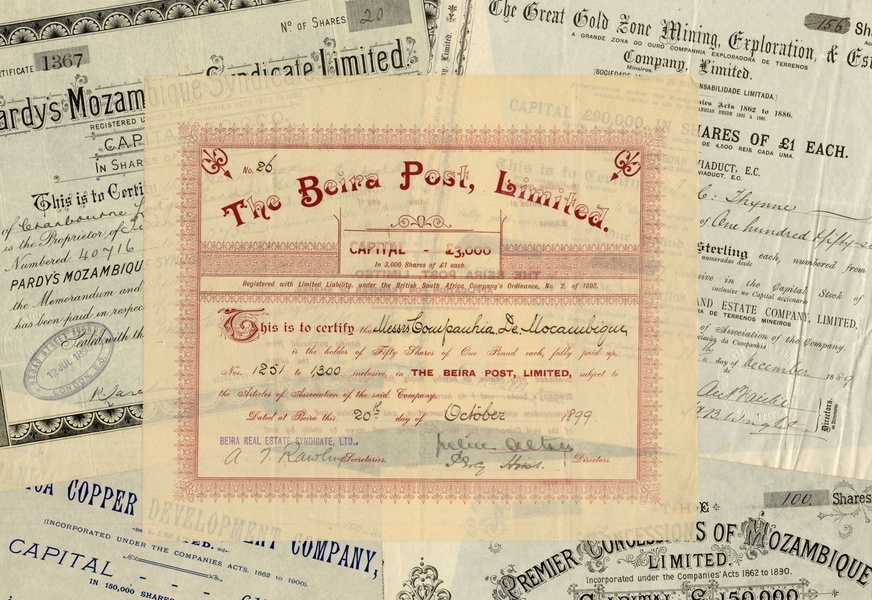 No. OF SHARES 20
CERTIFICATE 1367
ardys Mozambique Syndicate Limited.
REGISTERED U
CAP
IN SHAR
This is to Certi
of
is the Proprietor, of
Numbered 40716
PARDY'S MOZAMBIQU
the Memorandum and
has been paid in respec
Sealed with th
LONDON, E.C.
The Great Gold Zone Mining, Exploration, & Est
156 Sh
A GRANDE ZONA DO OURO COMPANHIA EXPLORADORA DE TERRENOS
Mineiros.
Company, Limited.
[SOCIEDADE
NSABILIDADE LIMITADA.]
nies Acts 1862 to 1886.
CAPITAL IN SHARES OF £1 EACH.
DE 4,500 REIS CADA UMA.
VIADUCT, E.C.
VIADUCT, E.C.
Thynne
of One hundred & fifty-si
Sterling each, numbered from
numeradas desde
ive in the Capital Stock of
inclusive no Capital accionario
AND ESTATE COMPANY, LIMITED,
RA DE TERRENOS MINEIROS
of Association of the Company.
day of December 1889
de
Directors.
No. 26
The Beira Post, Limited.
CAPITAL - £3,000
In 3,000 Shares of £1 each.
Registered with Limited Liability, under the British South Africa Company's Ordinance, No. 2, of 1895.
This is to certify that Messrs Companhia De Mocambique
is the holder of Fifty Shares of One Pound each, fully paid up,
Nos. 1251 to 1300 inclusive, in THE BEIRA POST, LIMITED, subject to
the Articles of Association of the said Company.
Dated at Beira this 20th day of October 1899
BEIRA REAL ESTATE SYNDICATE, LTD.,
Secretaries.
Directors.
COPPER DEVELOPMENT COMPANY,
(INCORPORATED UNDER THE COMPANIES ACTS, 1862 TO 1900).
CAPITAL - -
IN 150,000 SHARES
100 Shares
PREMIER CONCESSIONS OF MOZAMBIQUE
LIMITED.
Incorporated under the Companies' Acts 1862 to 1890.
CAPITAL £150,000